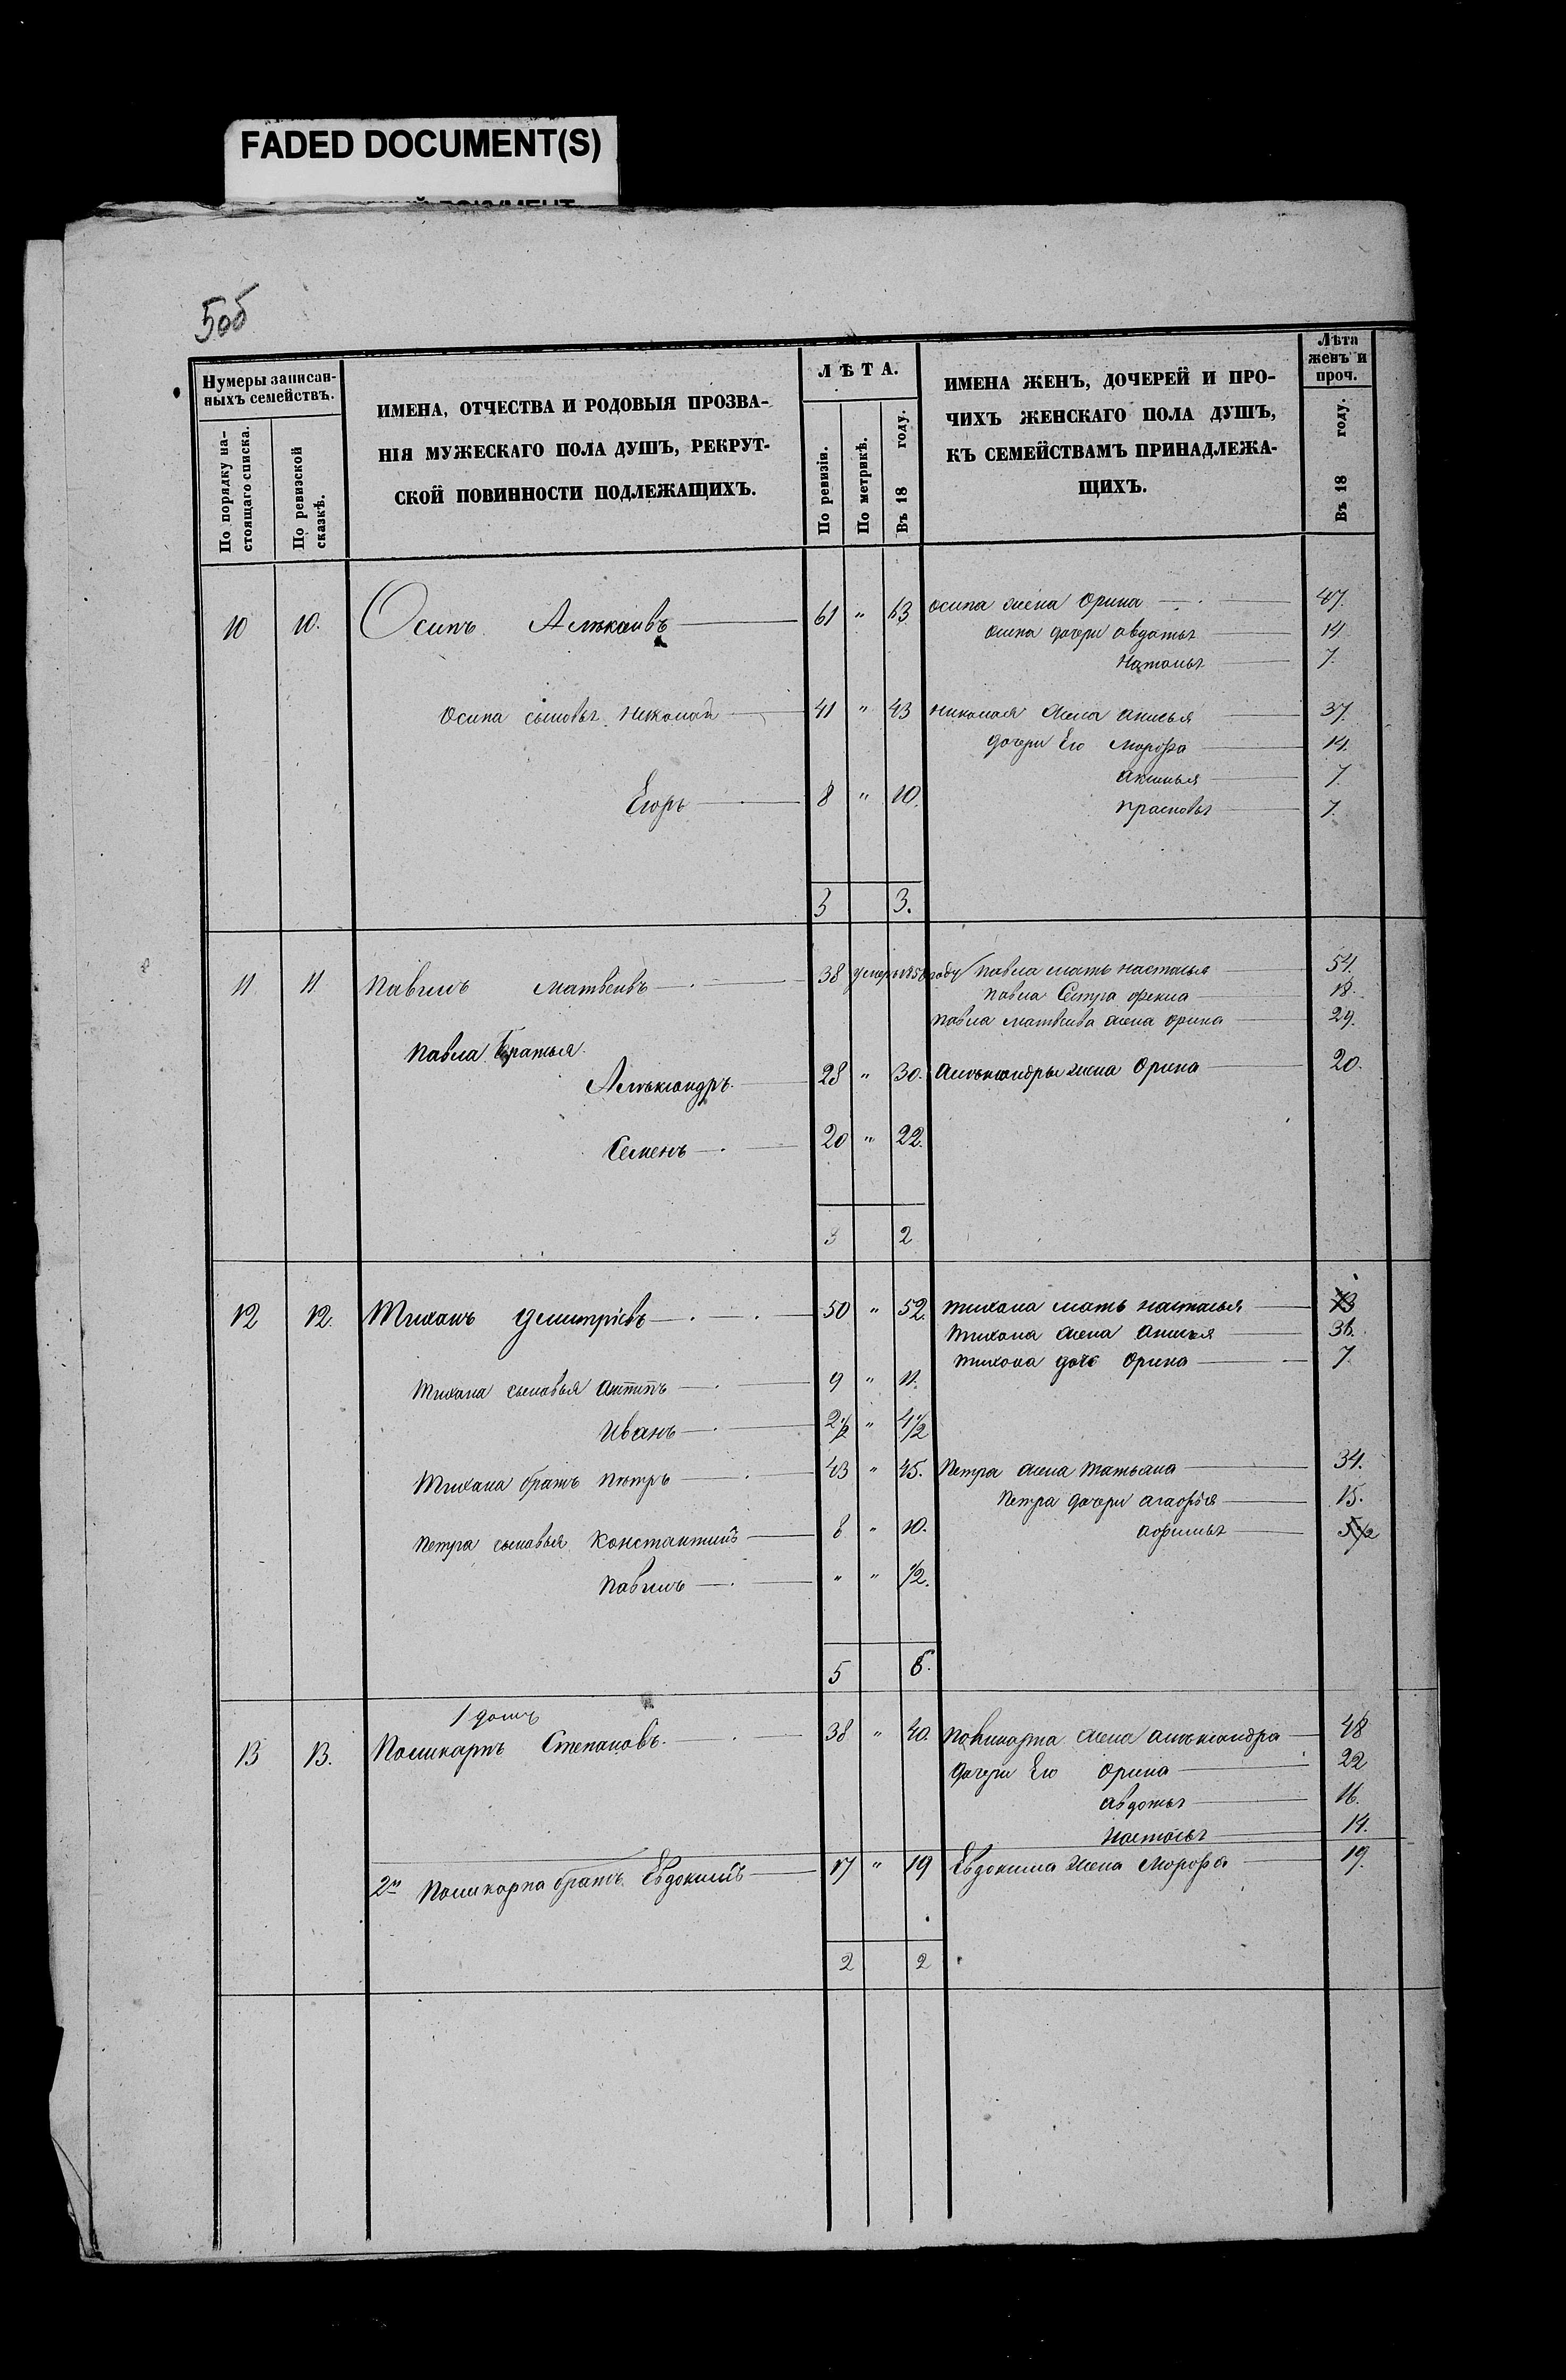 FADED DOCUMENT(S)
5об
Нумеры записан-
ныхъ семействъ.
По порядку на-
стоящаго списка.
По ревизской
сказкѣ.
ИМЕНА, ОТЧЕСТВА И РОДОВЫЯ ПРОЗВА-
НІЯ МУЖЕСКАГО ПОЛА ДУШЪ, РЕКРУТ-
СКОЙ ПОВИННОСТИ ПОДЛЕЖАЩИХЪ.
ЛѢТА.
По ревизіи.
По метрикѣ.
Въ 18 году.
ИМЕНА ЖЕНЪ, ДОЧЕРЕЙ И ПРО-
ЧИХЪ ЖЕНСКАГО ПОЛА ДУШЪ,
КЪ СЕМЕЙСТВАМЪ ПРИНАДЛЕЖА-
ЩИХЪ.
Лѣта
женъ и
проч.
Въ 18 году.
10 10. Осипъ 61 " 63 осипа жена Орина 47.
осипа дочери авдотья 14
Наталья 7.
Осипа сыновья Николай 41 " 43 николая жена анисья 37.
дочери Его Марфа 14.
аксинья 7.
Егоръ 8 " 10. прасковья 7.
3 3.
11 11 Павелъ Матвеивъ 38 умеръ 1858 году павла мать настасья 54.
павла Сестра фекла 18.
павла матвеива жена орина 29.
Павла Братья
Алѣксандръ 28 " 30. алѣксандры жена Орина 20.
Семенъ 20 " 22.
3 2
12 12. Тиханъ Дмитріевъ 50 " 52. тихана мать настасья
тихана жена анисья 36.
тихона дочь Орина 7.
Тихана сыновья антипъ 9 " 11.
Иванъ 2 1/2 " 4 1/2
Тихана братъ Пѣтръ 43 " 45. Петра жена татьяна 34.
Петра дочери агафья 15.
Петра сыновья Константинъ 8 " 10. афимья
Павелъ " " 1/2.
5 6.
1 домъ
13 13. Поликарпъ Степановъ 38 " 40. Поликарпа жена алѣксандра 48
дочери Его Орина 22
авдотья 16.
настасья 14.
2й Поликарпа братъ Евдокимъ 17 " 19 Евдокима жена Марфа 19.
2 2